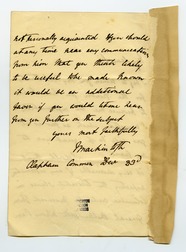 not personally acquainted If you should
at any time hear any communication
from him that you think likely
to be useful
it would be an additional
favor if you would
from you further on the subject
yours most faithfully
Mackintosh
Clapham Common Dec 23rd